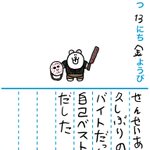 つ13にち金ようび
せんせいあ
久しぶりの
バイトだっ
自己ベスト
だした